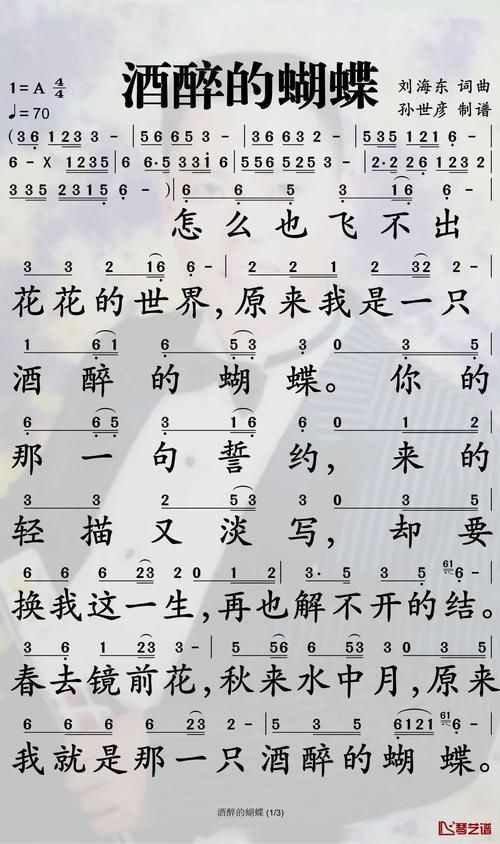 酒醉的蝴蝶
1=A 4/4
♩=70
刘海东 词曲
孙世彦 制谱
(36 123 3 - | 56653 - | 36632 - | 535 121
6 - X 1235 | 6 6·533i 6 - | 556 5253 - | 2·2 26 123
335 2315 6 - )| 6 6 5 3 16
怎么也飞不出
3 3 2 16 6 - | 2 2 1 2 32 2 -
花花的世界,原来我是一只
1 61 6 53 3 0 3 5
酒醉的蝴蝶。你的
6 65 3 16 6 0 1 2
那一句誓约,来的
3 3 2 53 3 0 3 5
轻描又淡写,却要
6 6 6 23 2 0 1 2 | 3· 5 3 5 5 61 6 -
换我这一生,再也解不开的结。
3 6 1 23 3 - | 5 56 6 53 3 3 5
春去镜前花,秋来水中月,原来
6 6 6 6 6 23 2 - | 5 3 5 6121 61 6 -
我就是那一只酒醉的蝴蝶。
酒醉的蝴蝶 (1/3)
琴艺谱